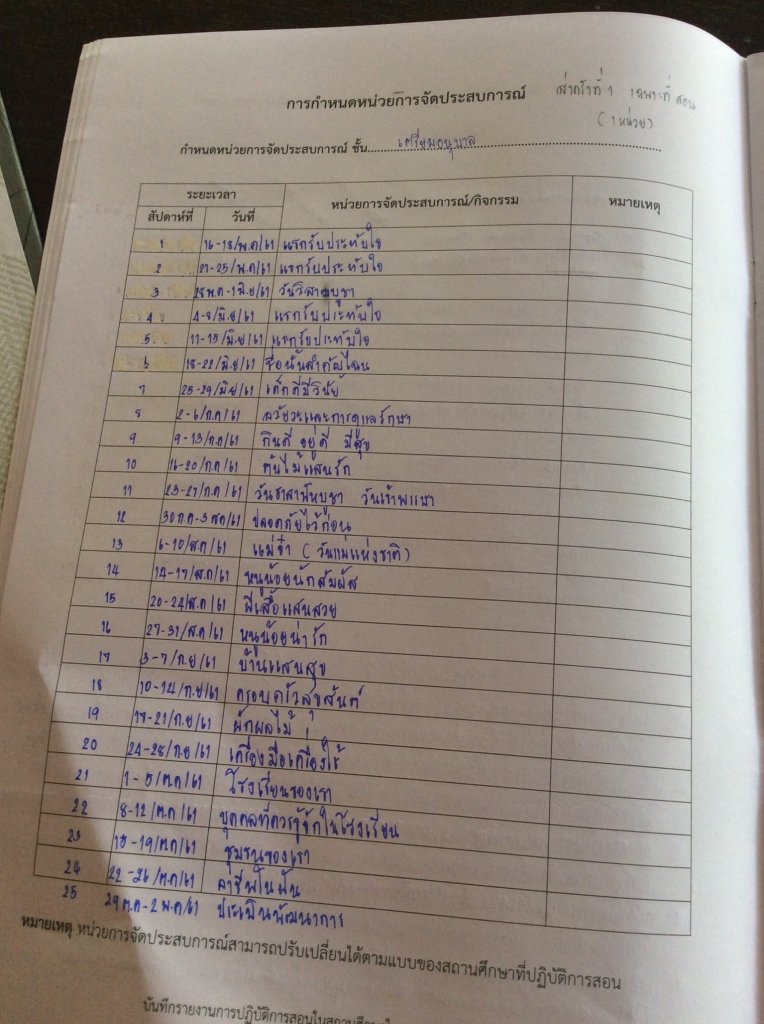 การกำหนดหน่วยการจัดประสบการณ์
เฉพาะที่สอน
(1 หน่วย)
กำหนดหน่วยการจัดประสบการณ์ ชั้น เตรียมอนุบาล
ระยะเวลา หน่วยการจัดประสบการณ์/กิจกรรม หมายเหตุ
สัปดาห์ที่ วันที่
1 16-18/พ.ค/61 แรกรับประทับใจ
2 21-25/พ.ค/61 แรกรับประทับใจ
3 28พ.ค-1มิ.ย/61 วันวิสาขบูชา
4 4-8/มิ.ย/61 แรกรับประทับใจ
5 11-15/มิ.ย/61 แรกรับประทับใจ
6 18-22/มิ.ย/61 ชื่อนั้นสำคัญไฉน
7 25-29/มิ.ย/61 เด็กดีมีวินัย
8 2-6/ก.ค/61 อวัยวะและการดูแลรักษา
9 9-13/ก.ค/61 กินดี อยู่ดี มีสุข
10 16-20/ก.ค/61 ต้นไม้แสนรัก
11 23-27/ก.ค/61 วันอาสาฬหบูชา วันเข้าพรรษา
12 30ก.ค-3สค/61 ปลอดภัยไว้ก่อน
13 6-10/ส.ค/61 แม่จ๋า (วันแม่แห่งชาติ)
14 14-17/ส.ค/61 หนูน้อยนักสัมผัส
15 20-24/ส.ค/61 ผีเสื้อแสนสวย
16 27-31/ส.ค/61 หนูน้อยน่ารัก
17 3-7/ก.ย/61 บ้านแสนสุข
18 10-14/ก.ย/61 ครอบครัวสุขสันต์
19 17-21/ก.ย/61 ผักผลไม้
20 24-28/ก.ย/61 เครื่องมือเครื่องใช้
21 1-5/ต.ค/61 โรงเรียนของเรา
22 8-12/ต.ค/61 บุคคลที่ควรรู้จักในโรงเรียน
23 15-19/ต.ค/61 ชุมชนของเรา
24 22-26/ต.ค/61 อาชีพในฝัน
25 29ต.ค-2พ.ค/61 ประเมินพัฒนาการ
หมายเหตุ หน่วยการจัดประสบการณ์สามารถปรับเปลี่ยนได้ตามแบบของสถานศึกษาที่ปฏิบัติการสอน
บันทึกรายงานการปฏิบัติการสอนในสถานศึกษา